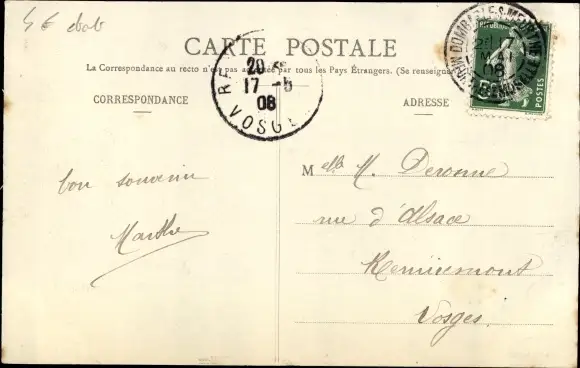 5 €
CARTE POSTALE
La Correspondance au recto n'est pas acceptée par tous les Pays Étrangers. (Se renseigner
CORRESPONDANCE
ADRESSE
20
17 - 5
08
VOSGES
DOMBASLE-S-MEURTHE
08
POSTES
bon souvenir
Marthe
Melle M. Deronne
rue d'Alsace
Remiremont
Vosges.